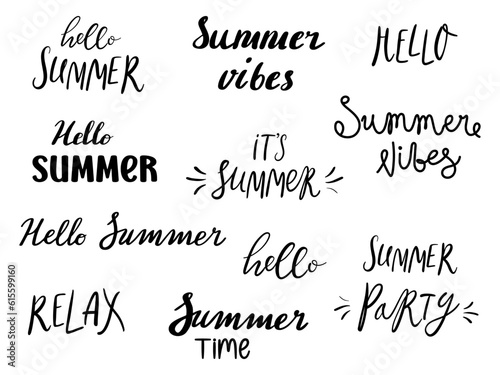 hello
SUMMER
Summer
vibes
HELLO
Hello
SUMMER
iT'S
SUMMER
Summer
Vibes
Hello Summer
hello
SUMMER
PARTY
RELAX
Summer
TIME
Adobe Stock | #615599160